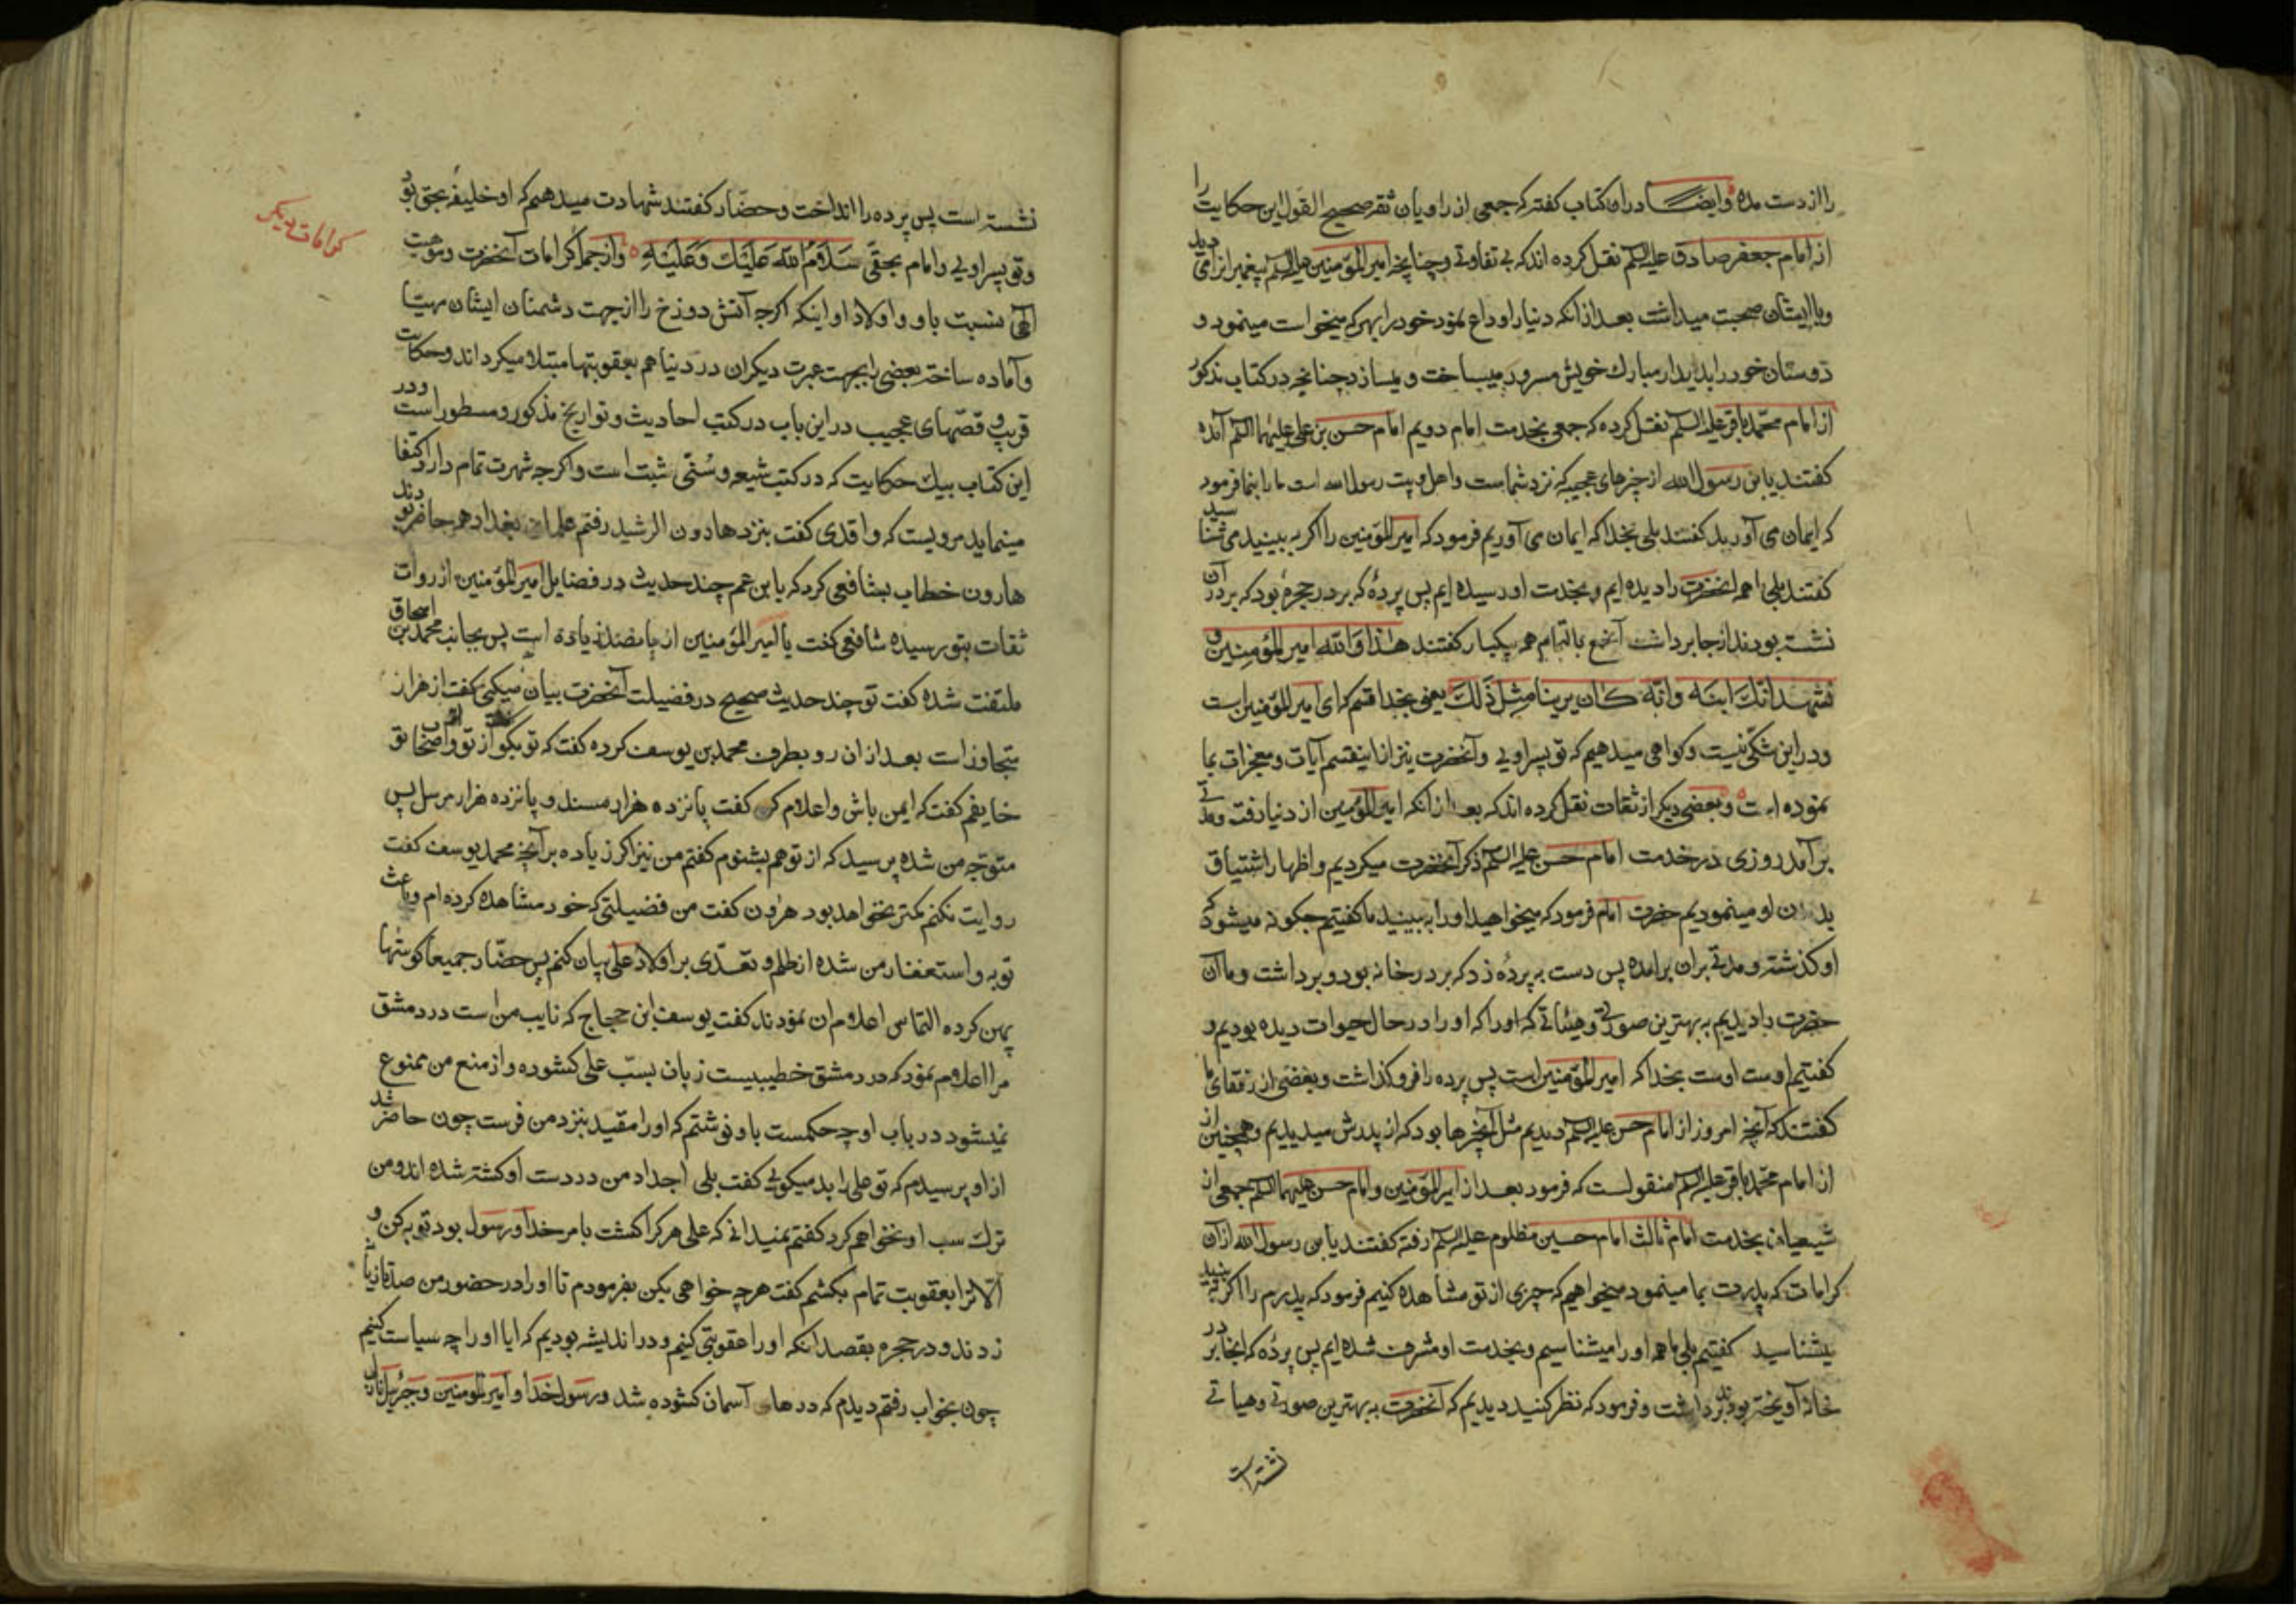 را از دست مده وایضا در ان کتاب گفته که جمعی از راویان ثقه صحیح القول این حکایت را
از امام جعفر صادق علیه السلم نقل کرده اند که بی تفاوتی وچنانچه امیر المؤمنین علیه السلم پیغمبر را از می دید
وباایشان صحبت میداشت بعد از آنکه دنیا را وداع نمود خود را بهر که میخواست مینمود و
دوستان خود را بدیدار مبارک خویش مسرور میساخت و میسازد چنانچه در کتاب مذکور
از امام محمد باقر علیه السلم نقل کرده که جمعی بخدمت امام دویم امام حسن بن علی علیهما السلم آمده
گفتند یابن رسول الله از چیزهای عجیبه که نزد شماست واهل وبیت رسول الله است ما را بنما فرمود
که ایمان می آورید گفتند بلی بخدا که ایمان می آوریم فرمود که امیر المؤمنین را اگر به بینید می شناسید
گفتند بلی همه انحضرت را دیده ایم وبخدمت او رسیده ایم پس پردۀ که بر در حجرۀ بود که بر در آن
نشسته بودند از جا برداشت آنجمع بالتمام همه بیکبار گفتند هذا والله امیر المؤمنین و
نشهد انک ابنه وانه کان یرینا مثل ذلک یعنی بخدا قسم که ای امیر المؤمنین است
ودر این شکی نیست وگواهی میدهیم که تو پسر اویی وآنحضرت نیز از اینقسم آیات ومعجزات بما
نموده است وبعضی دیگر از ثقات نقل کرده اند که بعد از انکه امیر المؤمنین از دنیا رفت ومدتی
برآمد روزی در خدمت امام حسن علیه السلم ذکر آنحضرت میکردیم واظهار اشتیاق
بدیدن او مینمودیم حضرت امام فرمود که میخواهید او را به بینید ما گفتیم چگونه میشود که
او گذشته ومدتی بران برامده پس دست به پردۀ زد که بر در خانه بود وبرداشت وما آن
حضرت را دیدیم به بهترین صورتی وهیئاتی که او را که او را در حال حیوات دیده بودیم و
گفتیم اوست اوست بخدا که امیر المؤمنین است پس پرده را فرو گذاشت وبعضی از رفقای ما
گفتند که آنچه امروز از امام حسن علیه السلم دیدیم مثل آنچیزها بود که از پدرش میدیدیم وهمچنین از
از امام محمد باقر علیه السلم منقولست که فرمود بعد از امیر المؤمنین وامام حسن علیهما السلم جمعی از
شیعیان بخدمت امام ثالث امام حسین مظلوم علیه السلم رفته گفتند یابن رسول الله از آن
کرامات که پدرت بما مینمود میخواهیم که چیزی از تو مشاهده کنیم فرمود که پدرم را اگر به بینید
بشناسید گفتیم بلی ما همه او را میشناسیم وبخدمت او مشرف شده ایم پس پردۀ که انجا بر در
خانۀ آویخته بودند برداشت وفرمود که نظر کنید دیدیم که آنحضرت به بهترین صورتی وهیاتی
نشسته است
نشسته است پس پرده را انداخت وحضار گفتند شهادت میدهیم که او خلیفۀ بحق بود
وتو پسر اویی وامام بحقی سلام الله علیک وعلیه واز جمله کرامات آنحضرت وموهبت
الهی بنسبت باو واولاد او اینکه اگرچه آتش دوزخ را از جهت دشمنان ایشان مهیا
وآماده ساخته بعضی را بجهت عبرت دیگران در دنیا هم بعقوبتها مبتلا میکرداند وحکایت
قریب و قصّهای عجیب در این باب در کتب احادیث وتواریخ مذکور ومسطور است ودر
این کتاب بیک حکایت که در کتب شیعه وسُنّی ثبت است واگرچه شهرت تمام دارد اکتفا
مینماید مرویست که واقدی گفت بنزد هارون الرشید رفتم علمای بغداد همه حاضر بودند
هارون خطاب بشافعی کرد که یابن عم چند حدیث در فضایل امیر المؤمنین از روات
ثقات بتو رسیده شافعی گفت یا امیر المؤمنین از پانصد زیاده است پس بجانب محمد بن اسحاق
ملتفت شده گفت تو چند حدیث صحیح در فضیلت آنحضرت بیان میکنی گفت از هزار
متجاوز است بعد از ان رو بطرف محمد بن یوسف کرده گفت که تو بگو از تو واصحاب تو
خایفم گفت که ایمن باش واعلام کن گفت پانزده هزار مسند و پانزده هزار مرسل پس
متوجه من شده پرسید که از تو هم بشنوم گفتم من نیز اگر زیاده برآنچه محمد یوسف گفت
روایت نکنم کمتر نخواهد بود هرون گفت من فضیلتی که خود مشاهده کرده ام وباعث
توبه واستغفار من شده از ظلم وتعدّی بر اولاد علی بیان کنم پس حضّار جمیعاً گوشها
پهن کرده التماس اعلام ان نمودند گفت یوسف ابن حجاج که نایب من است در دمشق
مرا اعلام نمود که در دمشق خطیبیست زبان بسبّ علی کشوده واز منع من ممنوع
نمیشود در باب او چه حکمست باو نوشتم که او را مقید بنزد من فرست چون حاضر شد
از او پرسیدم که تو علی را بد میکویی گفت بلی اجداد من در دست او کشته شده اند ومن
ترک سب او نخواهم کرد گفتم نمیدانی که علی هر کرا کشت بامر خدا ورسول بود توبه کن و
الّا ترا بعقوبت تمام بکشم گفت هر چه خواهی بکن بفرمودم تا او را در حضور من صد تازیانه
زدند ودر حجره بقصد انکه او را عقوبتی کنیم ودر اندیشه بودیم که ایا او را چه سیاست کنیم
چون بخواب رفتم دیدم که درهای آسمان کشوده شد ورسول خدا وامیر المؤمنین وجبرئیل
کرامات دیگر